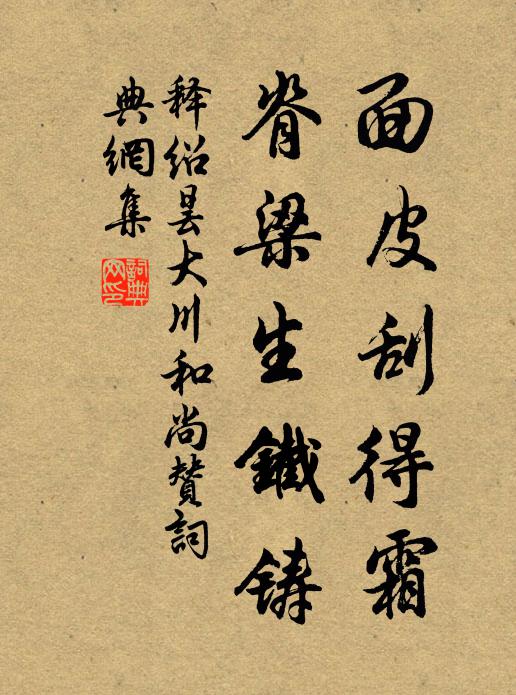 面皮刮得霜
脊梁生鐵鑄
释绍昙大川和尚赞詞
典網集
詞典網印